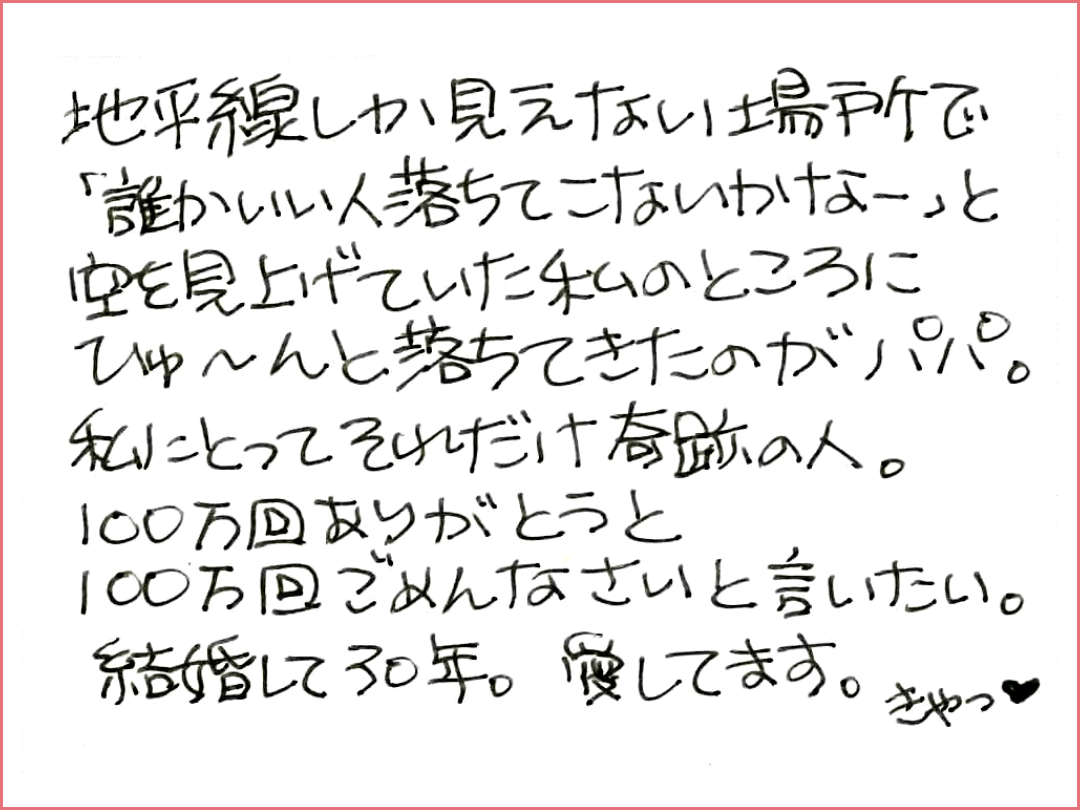 地平線しか見えない場所で
「誰かいい人落ちてこないかなー」と
空を見上げていた私のところに
ひゅ〜んと落ちてきたのがパパ。
私にとってそれだけ奇跡の人。
100万回ありがとうと
100万回ごめんなさいと言いたい。
結婚して30年。 愛してます。
きゃっ♥